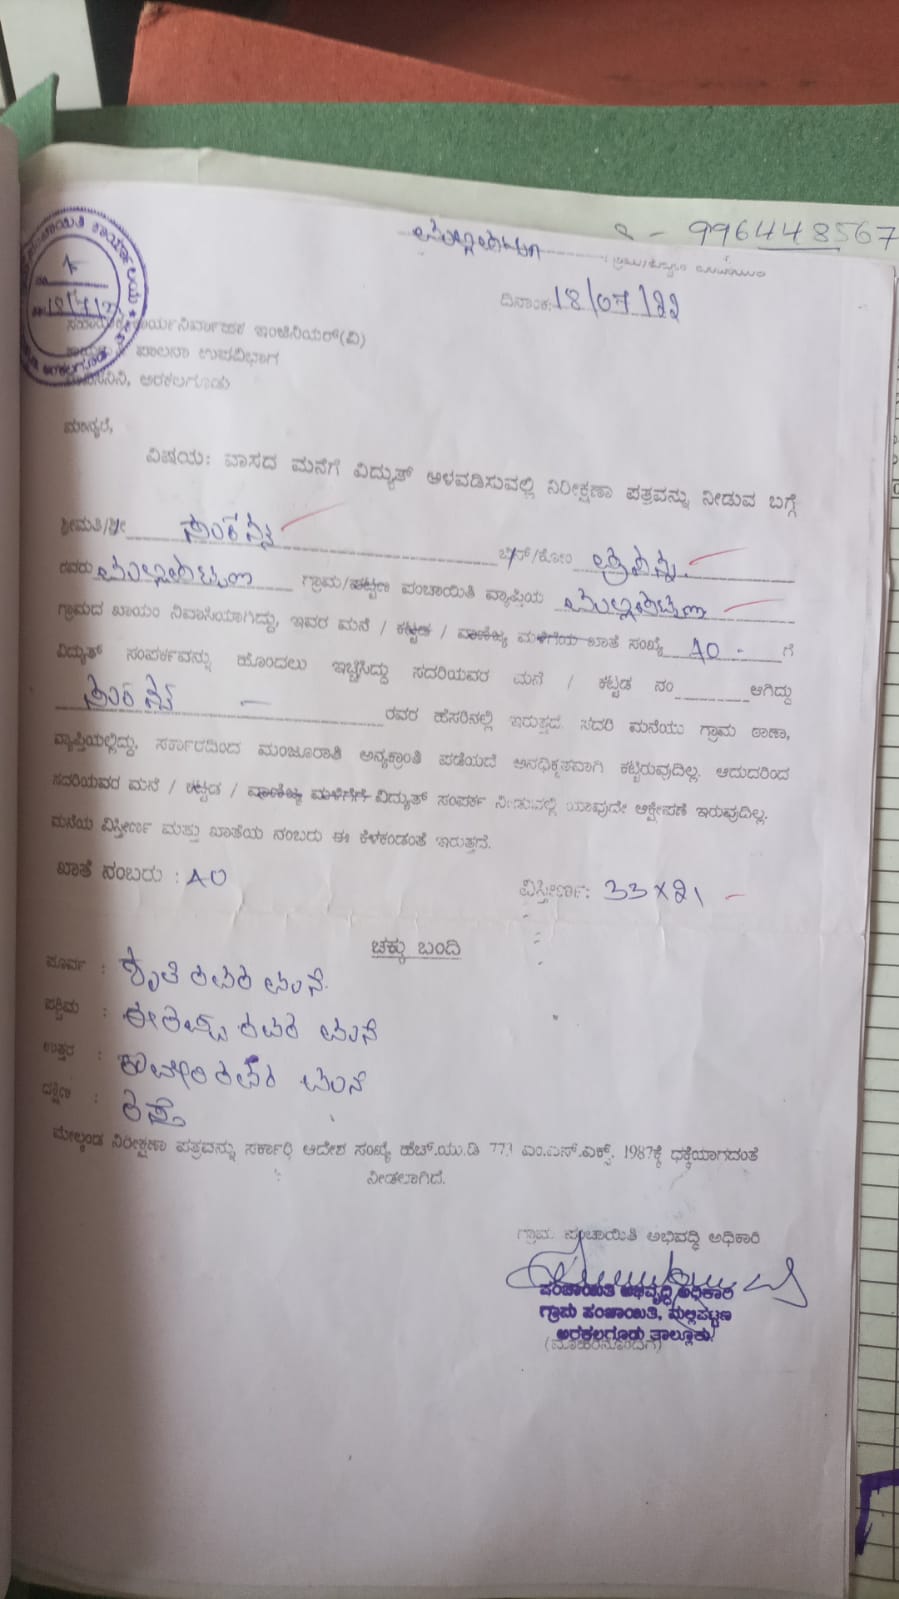 996448567
ದಿನಾಂಕ: 18/07/22
ಕಾರ್ಯನಿರ್ವಾಹಕ ಇಂಜಿನಿಯರ್(ವಿ)
ಪಾಲನಾ ಉಪವಿಭಾಗ
ಅರಕಲಗೂಡು
ಮಾನ್ಯರೆ,
ವಿಷಯ: ವಾಸದ ಮನೆಗೆ ವಿದ್ಯುತ್ ಅಳವಡಿಸುವಲ್ಲಿ ನಿರೀಕ್ಷಣಾ ಪತ್ರವನ್ನು ನೀಡುವ ಬಗ್ಗೆ
ಶ್ರೀಮತಿ/ಶ್ರೀ ಬಿನ್/ಕೋಂ
ರವರು ಗ್ರಾಮ/ಪಟ್ಟಣ ಪಂಚಾಯಿತಿ ವ್ಯಾಪ್ತಿಯ
ಗ್ರಾಮದ ಖಾಯಂ ನಿವಾಸಿಯಾಗಿದ್ದು, ಇವರ ಮನೆ / ಕಟ್ಟಡ / ವಾಣಿಜ್ಯ ಮಳಿಗೆಯ ಖಾತೆ ಸಂಖ್ಯೆ 40 ಗೆ
ವಿದ್ಯುತ್ ಸಂಪರ್ಕವನ್ನು ಹೊಂದಲು ಇಚ್ಚಿಸಿದ್ದು ಸದರಿಯವರ ಮನೆ / ಕಟ್ಟಡ ನಂ ಆಗಿದ್ದು
ರವರ ಹೆಸರಿನಲ್ಲಿ ಇರುತ್ತದೆ. ಸದರಿ ಮನೆಯು ಗ್ರಾಮ ಠಾಣಾ,
ವ್ಯಾಪ್ತಿಯಲ್ಲಿದ್ದು, ಸರ್ಕಾರದಿಂದ ಮಂಜೂರಾತಿ ಅನ್ಯಕ್ರಾಂತಿ ಪಡೆಯದೆ ಅನಧಿಕೃತವಾಗಿ ಕಟ್ಟಿರುವುದಿಲ್ಲ. ಆದುದರಿಂದ
ಸದರಿಯವರ ಮನೆ / ಕಟ್ಟಡ / ವಾಣಿಜ್ಯ ಮಳಿಗೆಗೆ ವಿದ್ಯುತ್ ಸಂಪರ್ಕ ನೀಡುವಲ್ಲಿ ಯಾವುದೇ ಆಕ್ಷೇಪಣೆ ಇರುವುದಿಲ್ಲ.
ಮನೆಯ ವಿಸ್ತೀರ್ಣ ಮತ್ತು ಖಾತೆಯ ನಂಬರು ಈ ಕೆಳಕಂಡಂತೆ ಇರುತ್ತದೆ.
ಖಾತೆ ನಂಬರು : 40 ವಿಸ್ತೀರ್ಣ: 33 x 21
ಚಕ್ಕು ಬಂದಿ
ಪೂರ್ವ : ರವರ ಮನೆ
ಪಶ್ಚಿಮ : ರವರ ಮನೆ
ಉತ್ತರ : ಕಾವೇರಿ ರವರ ಮನೆ
ದಕ್ಷಿಣ : ರಸ್ತೆ
ಮೇಲ್ಕಂಡ ನಿರೀಕ್ಷಣಾ ಪತ್ರವನ್ನು ಸರ್ಕಾರಿ ಆದೇಶ ಸಂಖ್ಯೆ ಹೆಚ್.ಯು.ಡಿ 773 ಎಂ.ಎನ್.ಎಕ್ಸ್. 1987ಕ್ಕೆ ಧಕ್ಕೆಯಾಗದಂತೆ
ನೀಡಲಾಗಿದೆ.
ಗ್ರಾಮ ಪಂಚಾಯಿತಿ ಅಭಿವೃದ್ಧಿ ಅಧಿಕಾರಿ
ಪಂಚಾಯಿತಿ ಅಭಿವೃದ್ಧಿ ಅಧಿಕಾರಿ
ಗ್ರಾಮ ಪಂಚಾಯಿತಿ, ಮಲ್ಲಿಪಟ್ಟಣ
ಅರಕಲಗೂಡು ತಾಲ್ಲೂಕು.